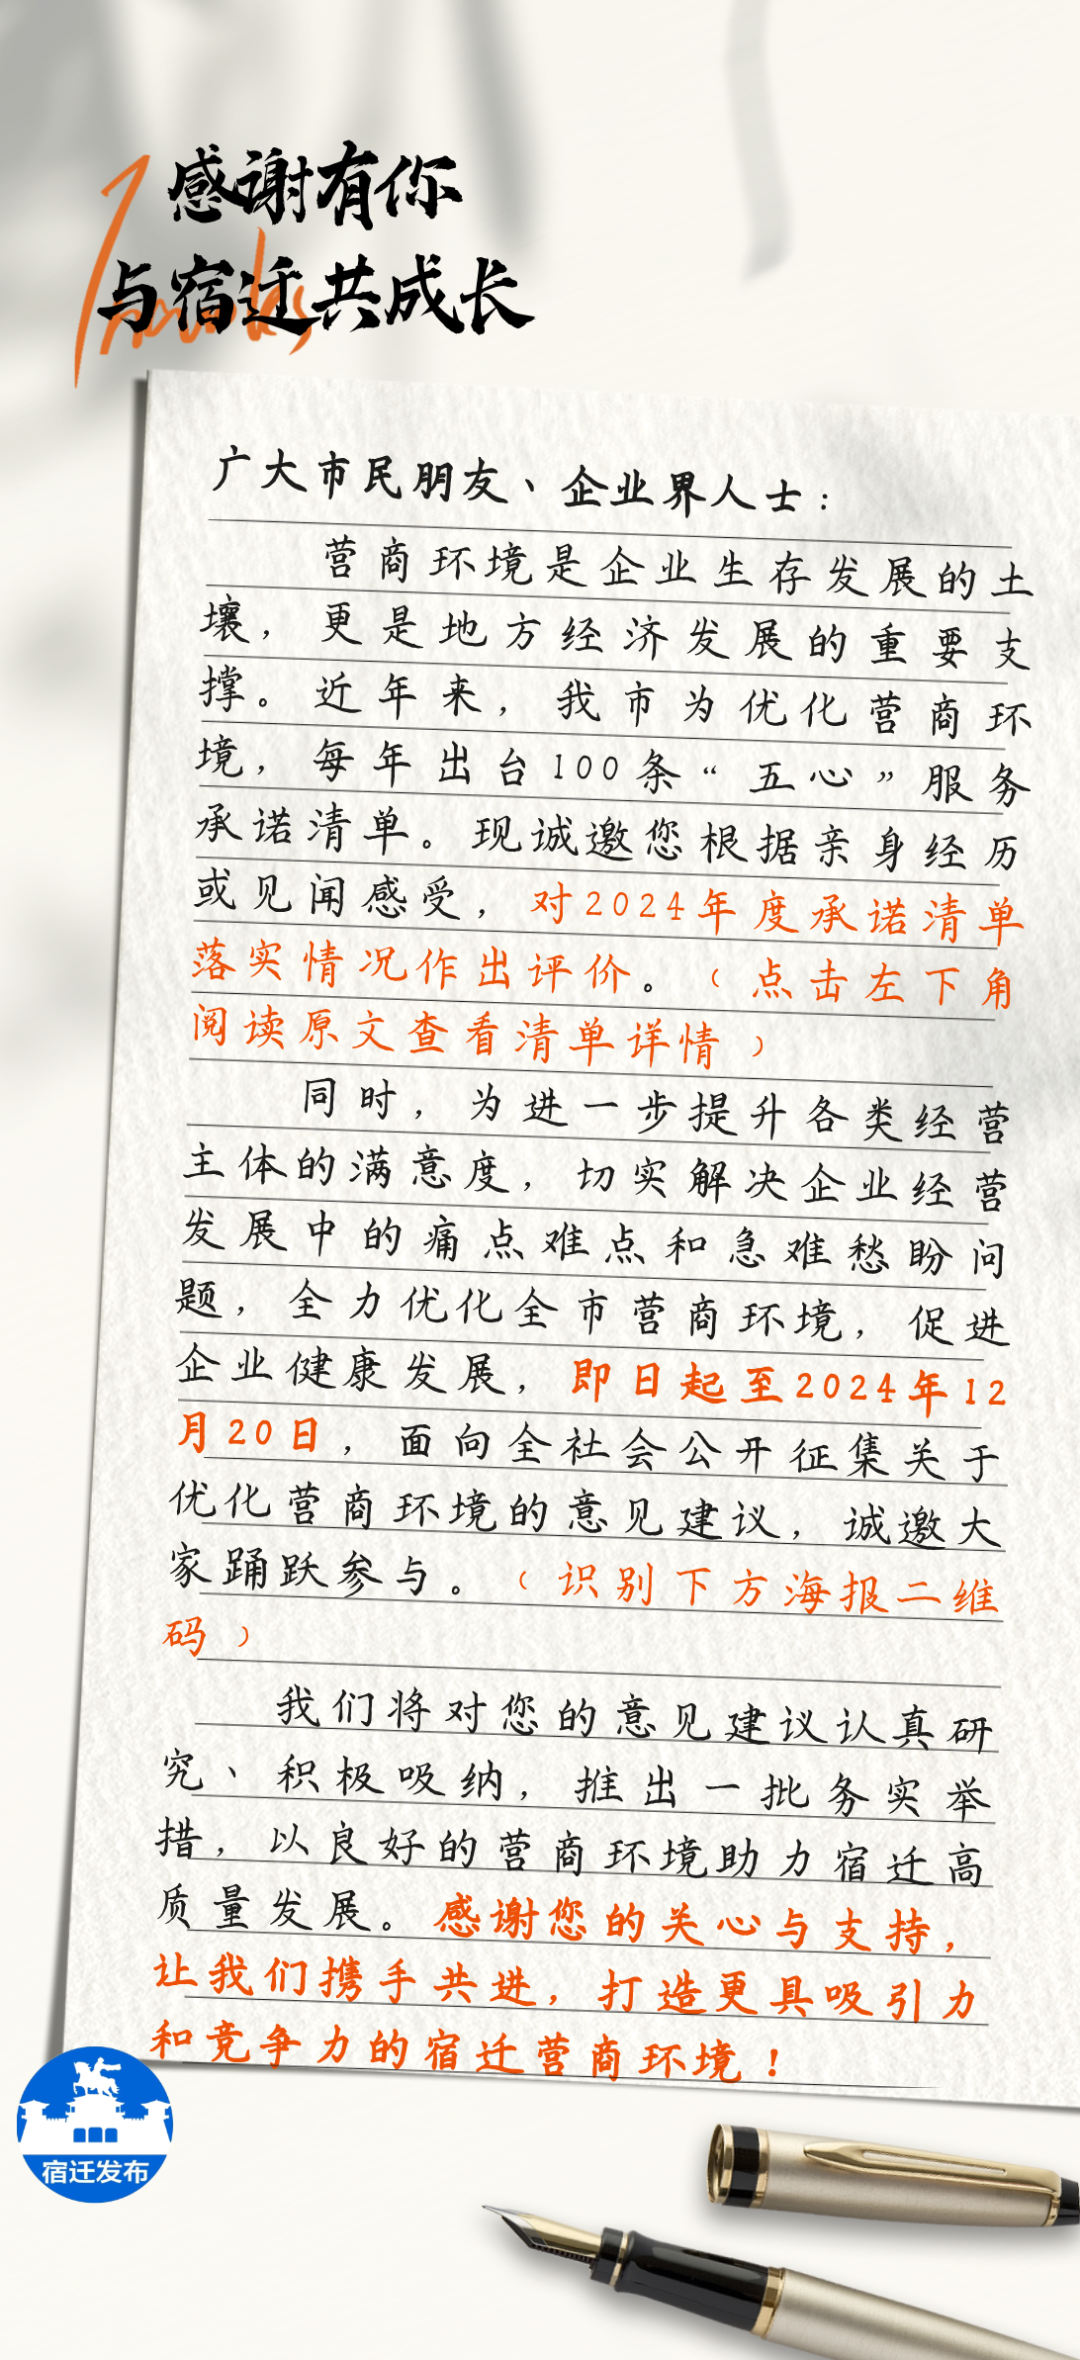 感谢有你
与宿迁共成长
Thanks
广大市民朋友、企业界人士：
营商环境是企业生存发展的土
壤，更是地方经济发展的重要支
撑。近年来，我市为优化营商环
境，每年出台100条“五心”服务
承诺清单。现诚邀您根据亲身经历
或见闻感受，对2024年度承诺清单
落实情况作出评价。（点击左下角
阅读原文查看清单详情）
同时，为进一步提升各类经营
主体的满意度，切实解决企业经营
发展中的痛点难点和急难愁盼问
题，全力优化全市营商环境，促进
企业健康发展，即日起至2024年12
月20日，面向全社会公开征集关于
优化营商环境的意见建议，诚邀大
家踊跃参与。（识别下方海报二维
码）
我们将对您的意见建议认真研
究、积极吸纳，推出一批务实举
措，以良好的营商环境助力宿迁高
质量发展。感谢您的关心与支持，
让我们携手共进，打造更具吸引力
和竞争力的宿迁营商环境！
宿迁发布